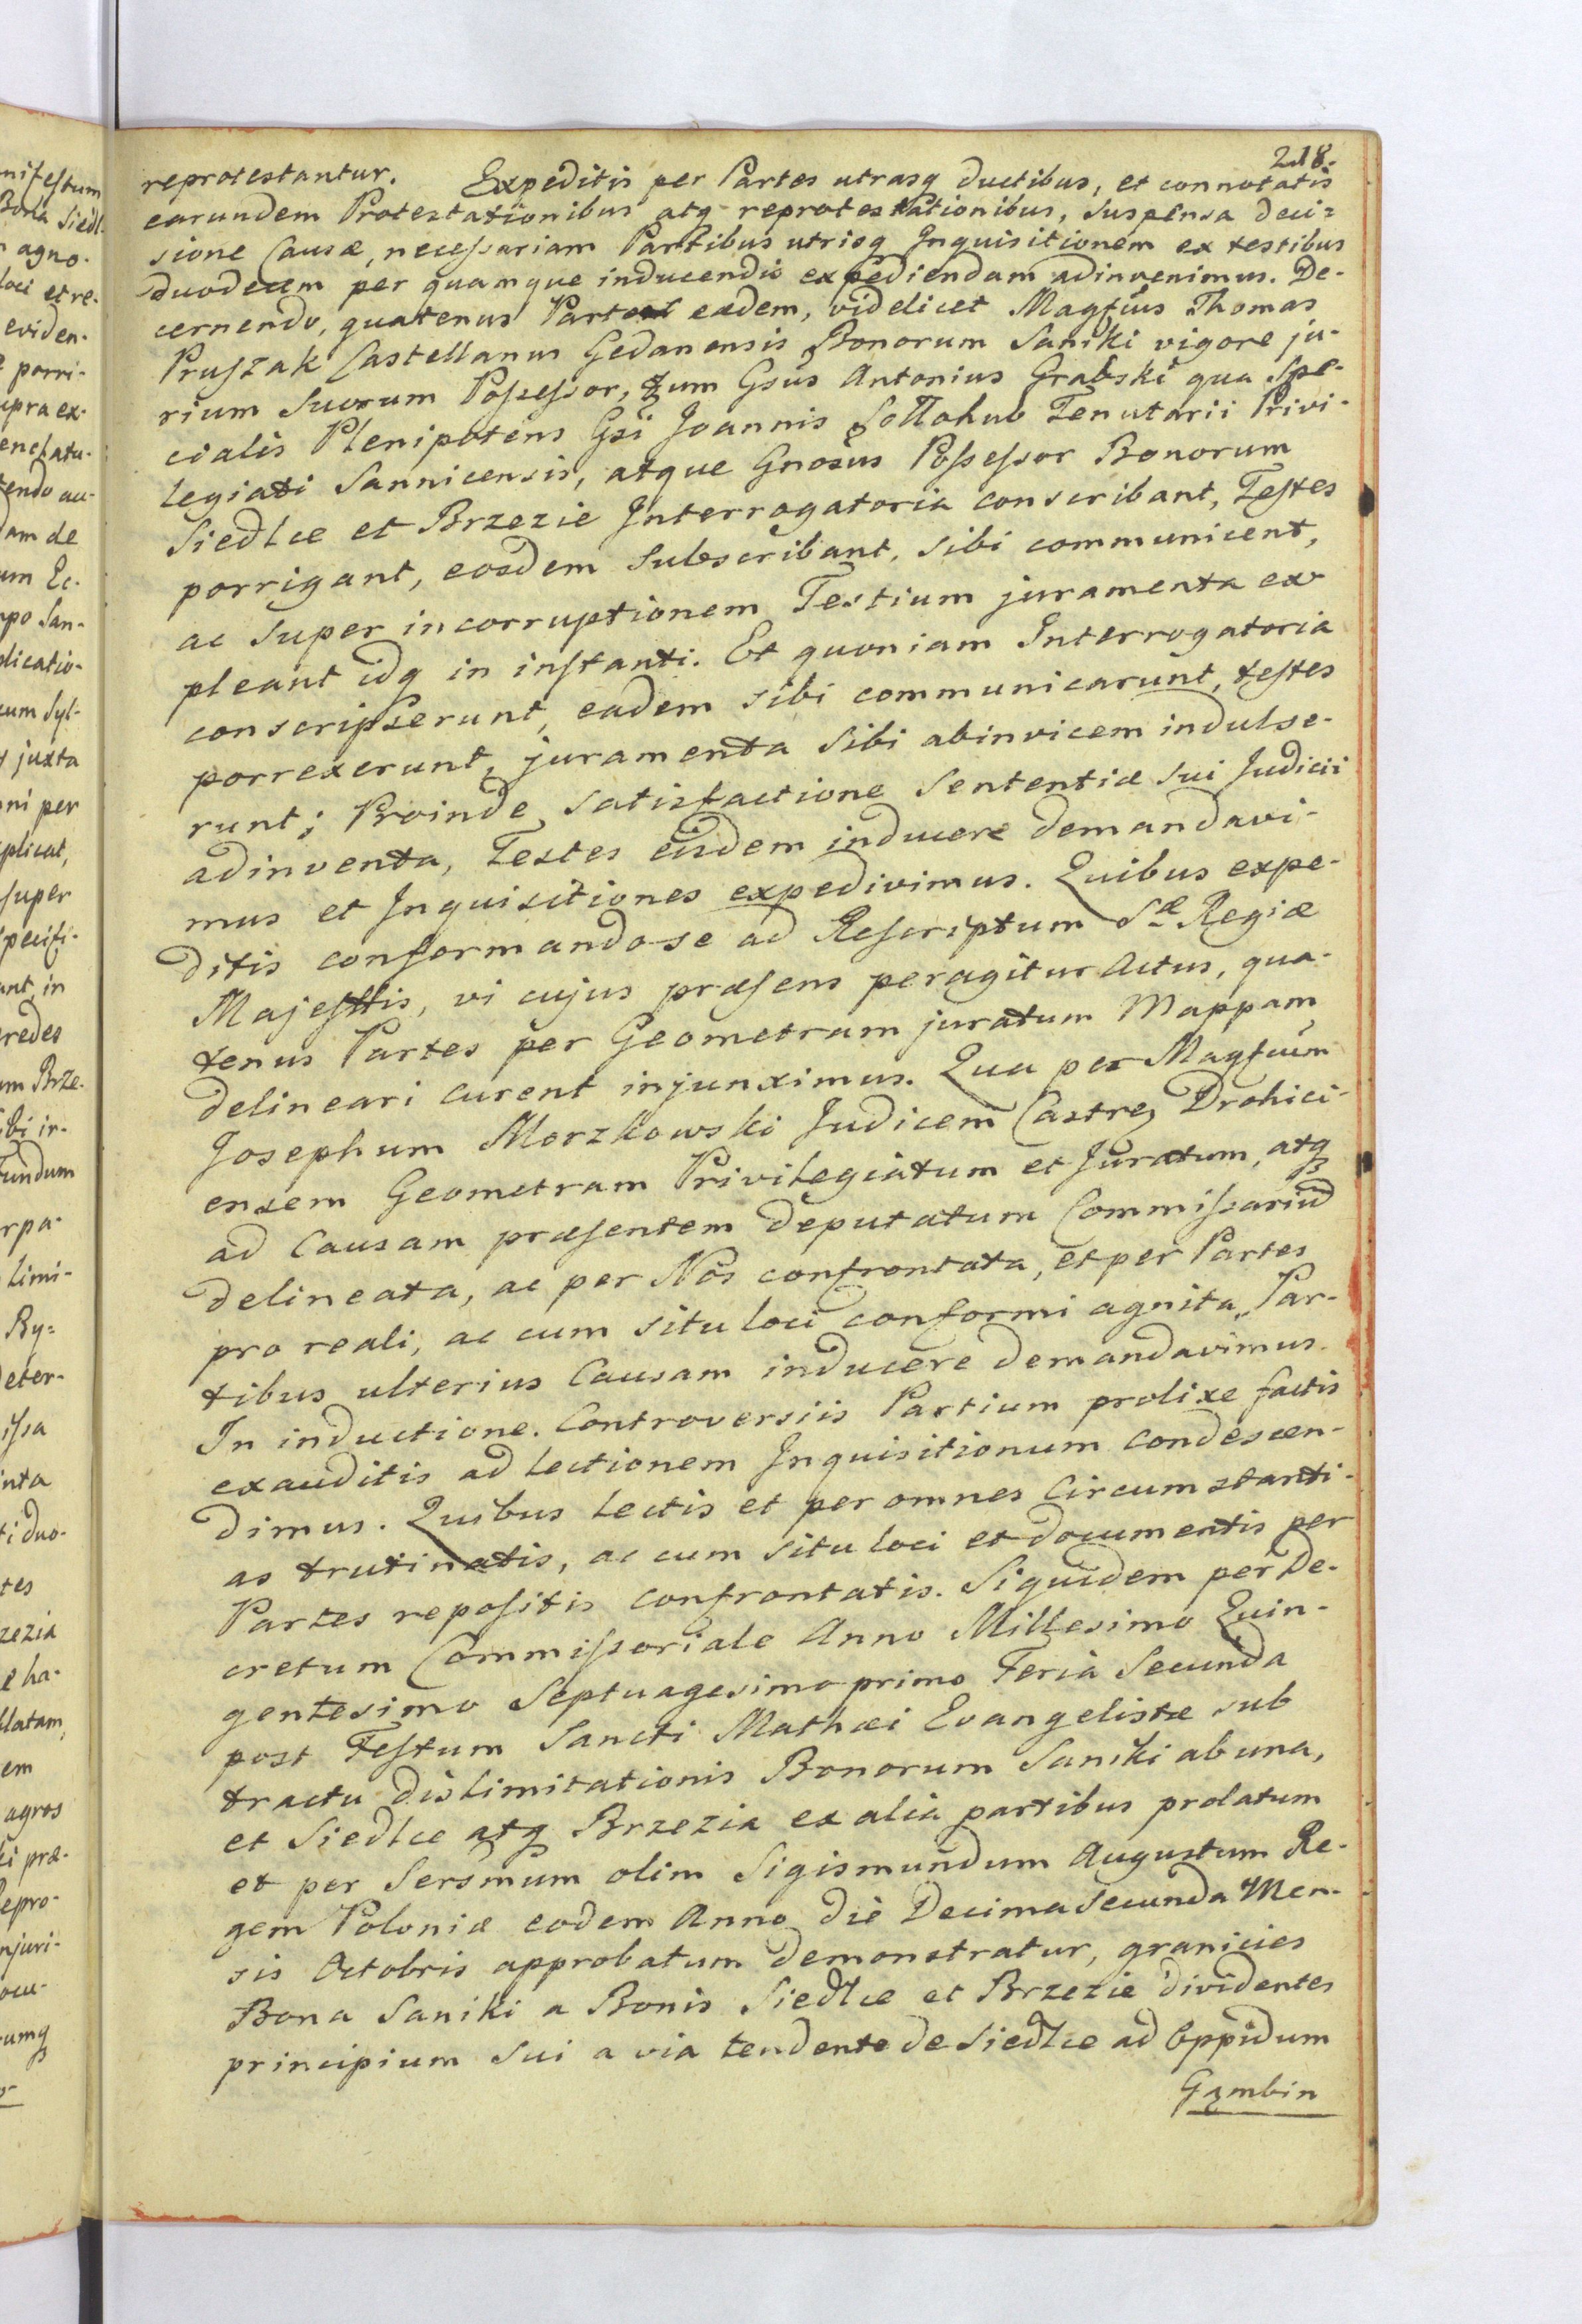 218.
reprotestantur. Expeditis per Partes utrasq ductibus, et connotatis
earundem Protestationibus atq reprotestationibus, suspensa deci=
sione Causæ, necessariam Partibus utrisq Inquisitionem ex testibus
duodecem per quamque inducendis expediendam adinvenimus. De-
cernendo, quatenus Partes eædem, videlicet Magfcus Thomas
Pruszak Castellanus Gedanensis Bonorum Saniki vigore ju-
rium suorum Possessor, tum Gsus Antonius Grabski qua Spe-
cialis Plenipotens Gsi Joannis Sołłohub Tenutarii Privi-
legiati Sannicensis, atque Gnosus Possessor Bonorum
Siedlce et Brzezie Interrogatoria conscribant, Testes
porrigant, eosdem Subscribant, sibi communicent,
ac super incorruptionem Testium juramenta ex
pleant idq in instanti. Et quoniam Interrogatoria
conscripserunt, eadem sibi communicarunt, testes
porrexerunt, juramenta sibi abinvicem indulse-
runt; Proinde satisfactione Sententiæ sui Judicii
adinventa, Testes eisdem inducere demandavi-
mus et Inquisitiones expedivimus. Quibus expe-
ditis conformando se ad Rescriptum Sæ Regiæ
Majesttis, vi cujus præsens peragitur Actus, qua-
tenus Partes per Geometram juratum Mappam
delineari curent injunximus. Qua per Magfcum
Josephum Morzkowski Judicem Castren Drohici-
ensem Geometram Privilegiatum et Juratum, atq
ad Causam præsentem deputatum Commissarium
delineata, ac per Nos confrontata, et per Partes
pro reali, ac cum situ loci conformi agnita, Par-
tibus ulterius Causam inducere demandavimus.
In inductione. Controversiis Partium prolixe factis
exauditis ad lectionem Inquisitionum condescen-
dimus. Quibus lectis et per omnes Circumstanti-
as trutinatis, ac cum situ loci et documentis per
Partes repositis confrontatis. Siquidem per De-
cretum Commissoriale Anno Millesimo Quin-
gentesimo Septuagesimo primo Feria Secunda
post Festum Sancti Mathæi Evangelistæ sub
tractu dislimitationis Bonorum Saniki ab una,
et Siedlce atq Brzezia ex alia partibus prolatum
et per Sersmum olim Sigismundum Augustum Re-
gem Poloniæ eodem Anno die Decima Secunda Men-
sis Octobris approbatum demonstratur, granicies
Bona Saniki a Bonis Siedlce et Brzezie dividentes
principium sui a via tendente de Siedlce ad Oppidum
Gąmbin